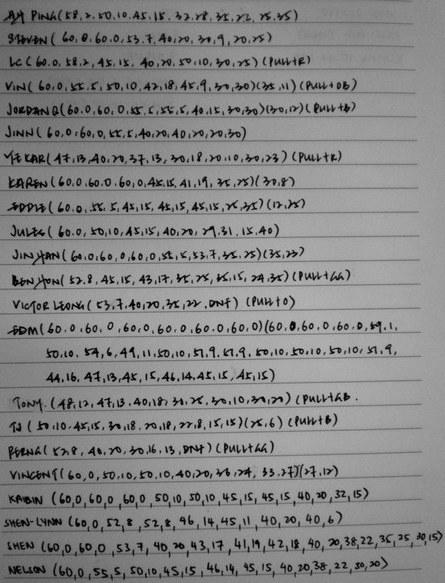 PING(58,2,50,10,45,15,32,28,35,22,25,35)
STEVEN(60,0,60,0,53,7,40,20,30,9,20,25)
LC(60,0,58,2,45,15,40,20,50,10,30,25)(PULL+R)
VIN(60,0,55,5,50,10,42,18,45,9,30,30)(35,11)(PULL+OB)
JORDAN Q(60,0,60,0,55,5,55,5,40,15,30,30)(30,12)(PULL+B)
JINN(60,0,60,0,55,5,40,20,40,20,20,30)
KAR(47,13,40,20,37,13,30,18,20,10,30,23)(PULL+R)
KAREN(60,0,60,0,60,0,45,15,41,19,35,25)(30,8)
EDDIE(60,0,55,5,45,15,45,15,45,15,25,35)(12,25)
JULES(60,0,50,10,45,15,40,20,29,31,15,40)
JIN HAN(60,0,60,0,60,0,55,5,53,7,35,25)(35,23)
BEN HON(52,8,45,15,43,17,35,25,35,15,24,35)(PULL+GG)
VICTOR LEONG(53,7,40,20,35,22,DNF)(PULL+O)
EDM(60,0,60,0,60,0,60,0,60,0,60,0)(60,0,60,0,60,0,59,1,
50,10,54,6,49,11,50,10,51,9,51,9,50,10,50,10,50,10,51,9,
44,16,47,13,45,15,46,14,45,15,45,15)
TONY(48,12,47,13,40,18,35,25,30,10,30,20)(PULL+GB.
TJ(50,10,45,15,30,18,20,18,22,8,15,15)(25,6)(PULL+B)
PERNG(52,8,40,20,30,16,13,DNF)(PULL+GG)
VINCENT(60,0,50,10,50,10,40,20,36,24,33,27)(27,12)
KAIBIN(60,0,60,0,60,0,50,10,50,10,45,15,45,15,40,20,32,15)
SHEN-LYNN(60,0,52,8,52,8,46,14,45,11,40,20,40,6)
SHEN(60,0,60,0,53,7,40,20,43,17,41,19,42,18,40,20,38,22,35,25,30,15)
NELSON(60,0,55,5,50,10,45,15,46,14,45,15,40,20,38,22,30,20)